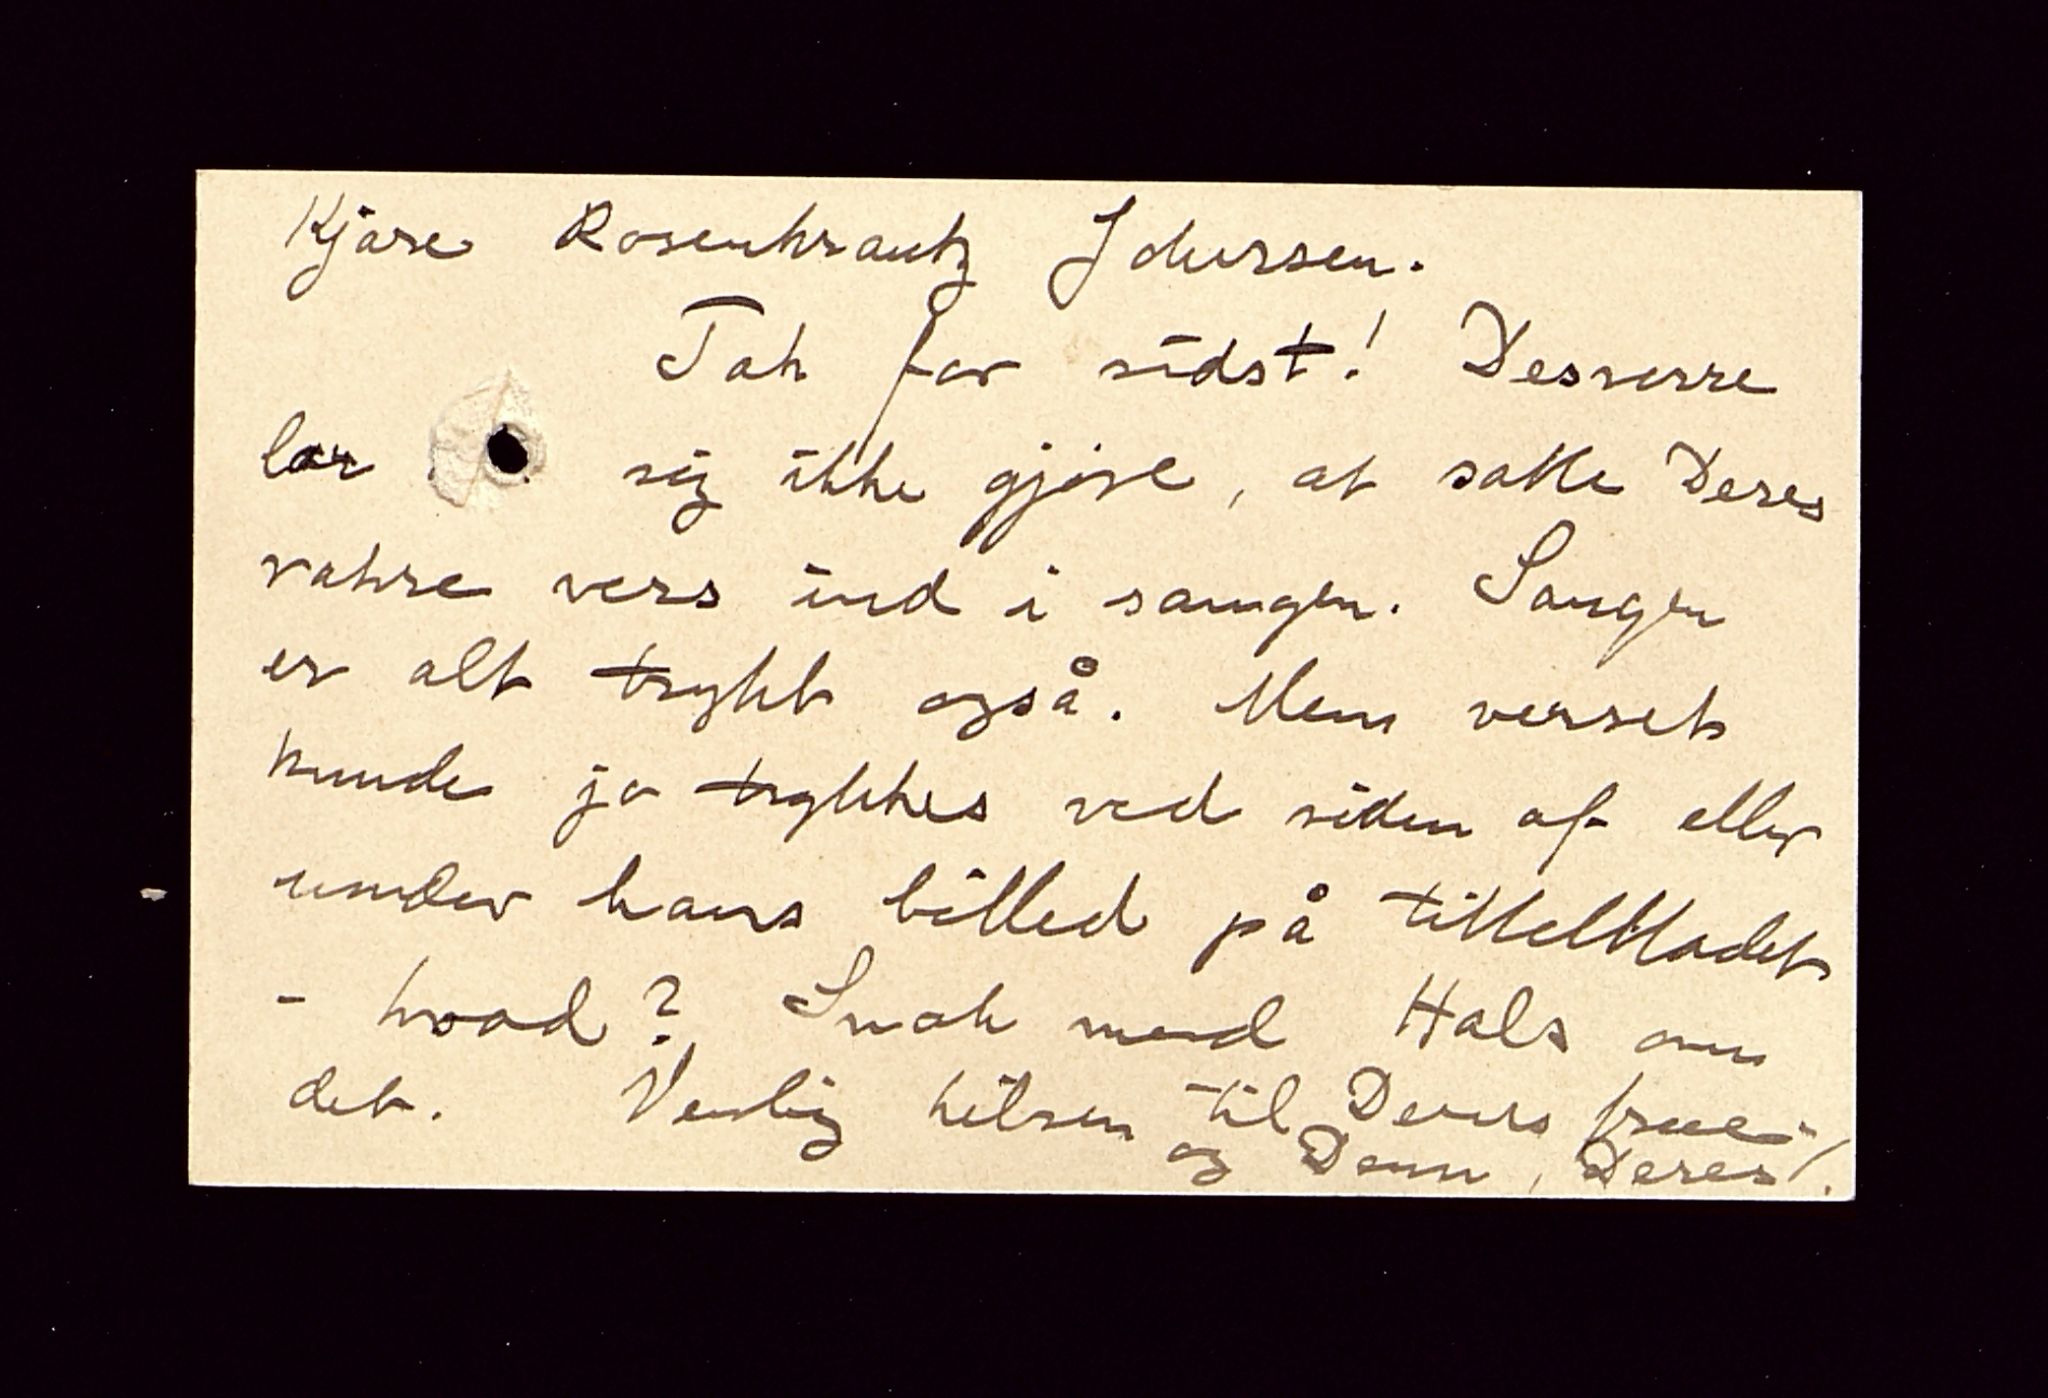 Kjære Rosenkrantz Johnsen.
Tak for sidst! Desværre
lar sig ikke gjøre, at sætte Deres
vakre vers ind i sangen. Sangen
er alt trykt også. Men verset
kunde jo trykkes ved siden af eller
under hans billed på tittelbladet
- hvad? Snak med Hals om
det. Venlig hilsen til Deres frue
og Dem, Deres